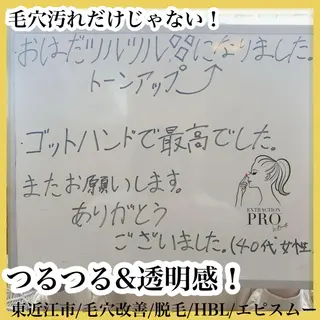 毛穴汚れだけじゃない！
おはだツルツルになりました。
トーンアップ
ゴットハンドで最高でした。
またお願いします。
ありがとう
ございました。(40代女性
EXTRACTION
PRO
つるつる&透明感！
東近江市/毛穴改善/脱毛/HBL/エピスムー